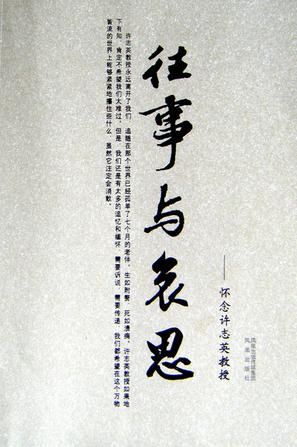 往事与哀思
——怀念许志英教授
许志英教授永远离开了我们，追随在那个世界已经孤单了七个月的老伴。生如附赘，死如溃痈。许志英教授如果地
下有知，肯定不希望我们太难过。但是，我们还是有太多的追忆和缅怀，需要诉说，需要传递，我们都希望在这个万物
皆流的世界上能够紧紧地攥住些什么，虽然它注定会消散。
凤凰出版传媒集团
凤凰出版社